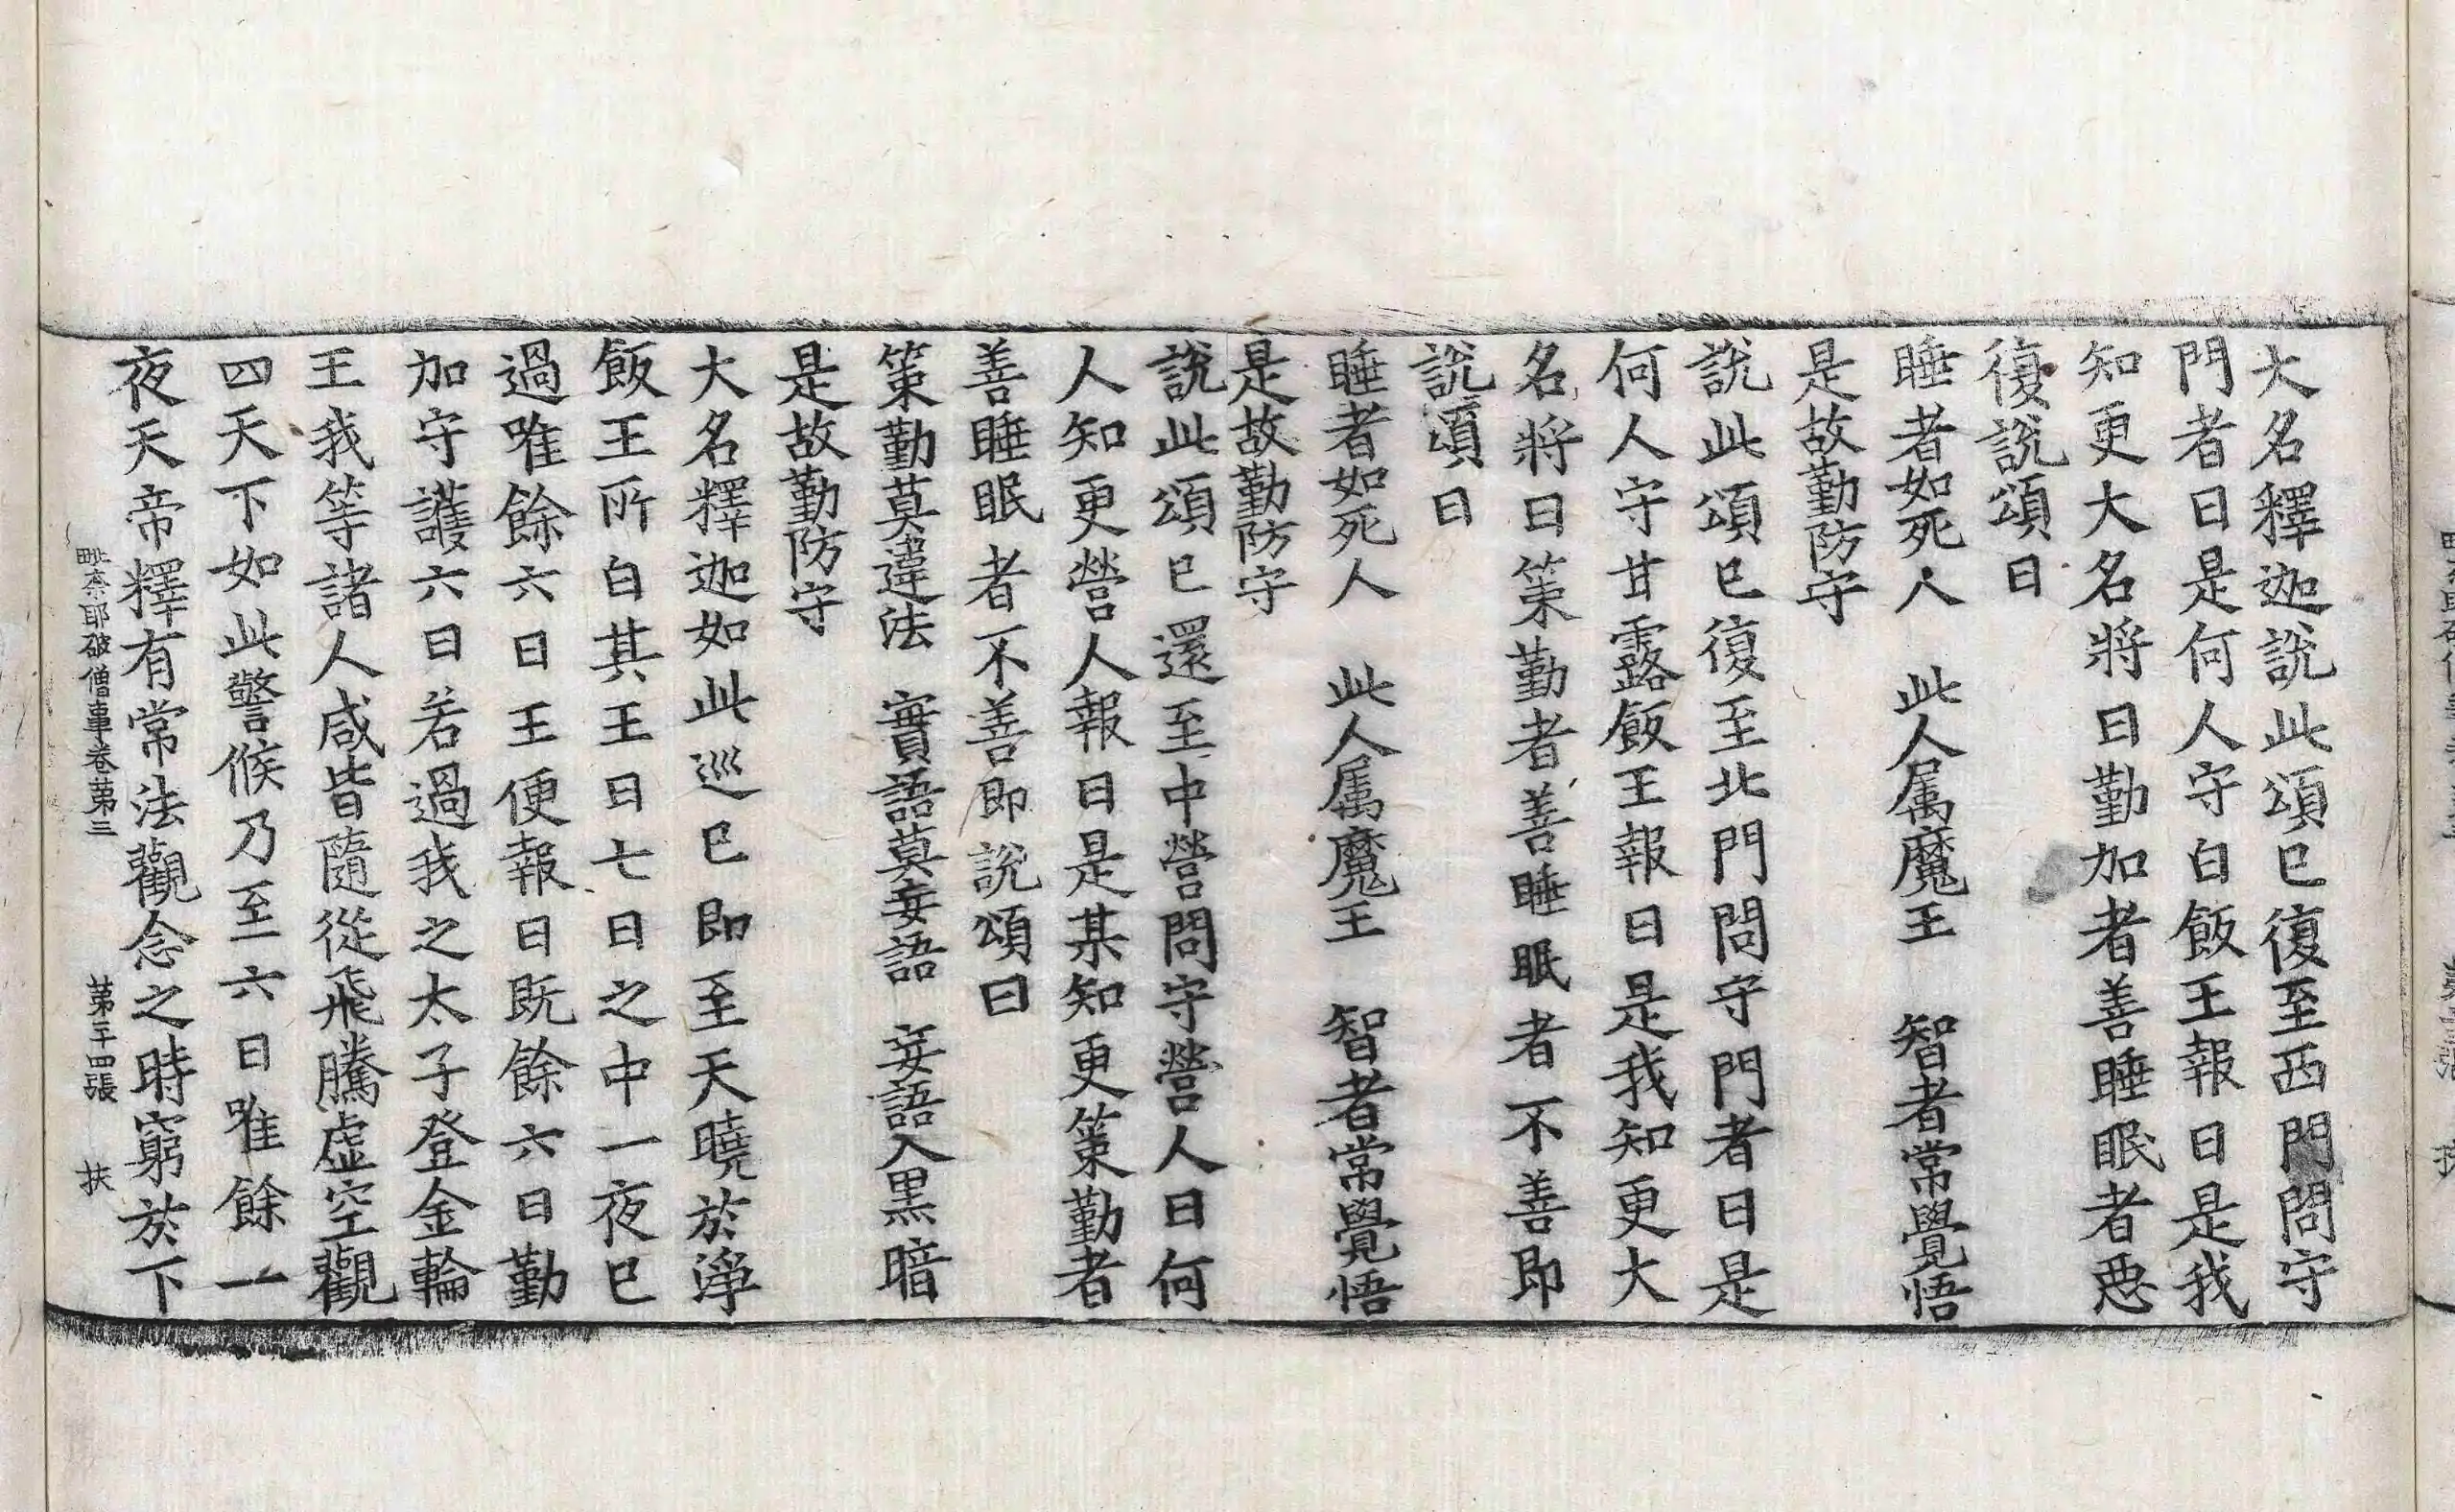 大名釋迦說此頌已復至西門問守
門者曰是何人守白飯王報曰是我
知更大名將曰勤加者善睡眠者惡
復說頌曰
睡者如死人　此人属魔王　智者常覺悟
是故勤防守
說此頌已復至北門問守門者曰是
何人守甘露飯王報曰是我知更大
名將曰策勤者善睡眠者不善即
說頌曰
睡者如死人　此人属魔王　智者常覺悟
是故勤防守
說此頌已還至中營問守營人曰何
人知更營人報曰是某知更策勤者
善睡眠者不善即說頌曰
策勤莫違法　實語莫妄語　妄語入黑暗
是故勤防守
大名釋迦如此巡已即至天曉於淨
飯王所白其王曰七日之中一夜已
過唯餘六日王便報曰既餘六日勤
加守護六日若過我之太子登金輪
王我等諸人咸皆隨從飛騰虛空觀
四天下如此警候乃至六日唯餘一
夜天帝釋有常法觀念之時窮於下
毗奈耶破僧事卷第三　第二十四張　扶